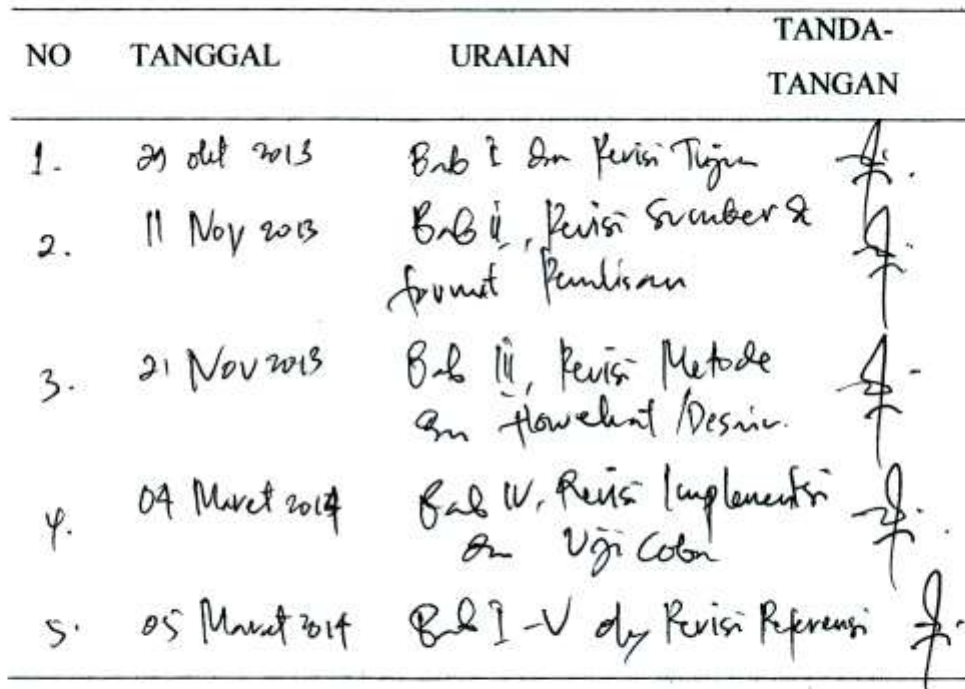 NO TANGGAL URAIAN TANDA-
TANGAN
1. 29 okt 2013 Bab I dan Revisi Tujuan
2. 11 Nov 2013 Bab II, Revisi Sumber &
format Penulisan
3. 21 Nov 2013 Bab III, Revisi Metode
dan Flowchat / Desain.
4. 04 Maret 2014 Bab IV. Revisi Implementsi
dan Uji Coba
5. 05 Maret 2014 Bab I - V dg Revisi Referensi